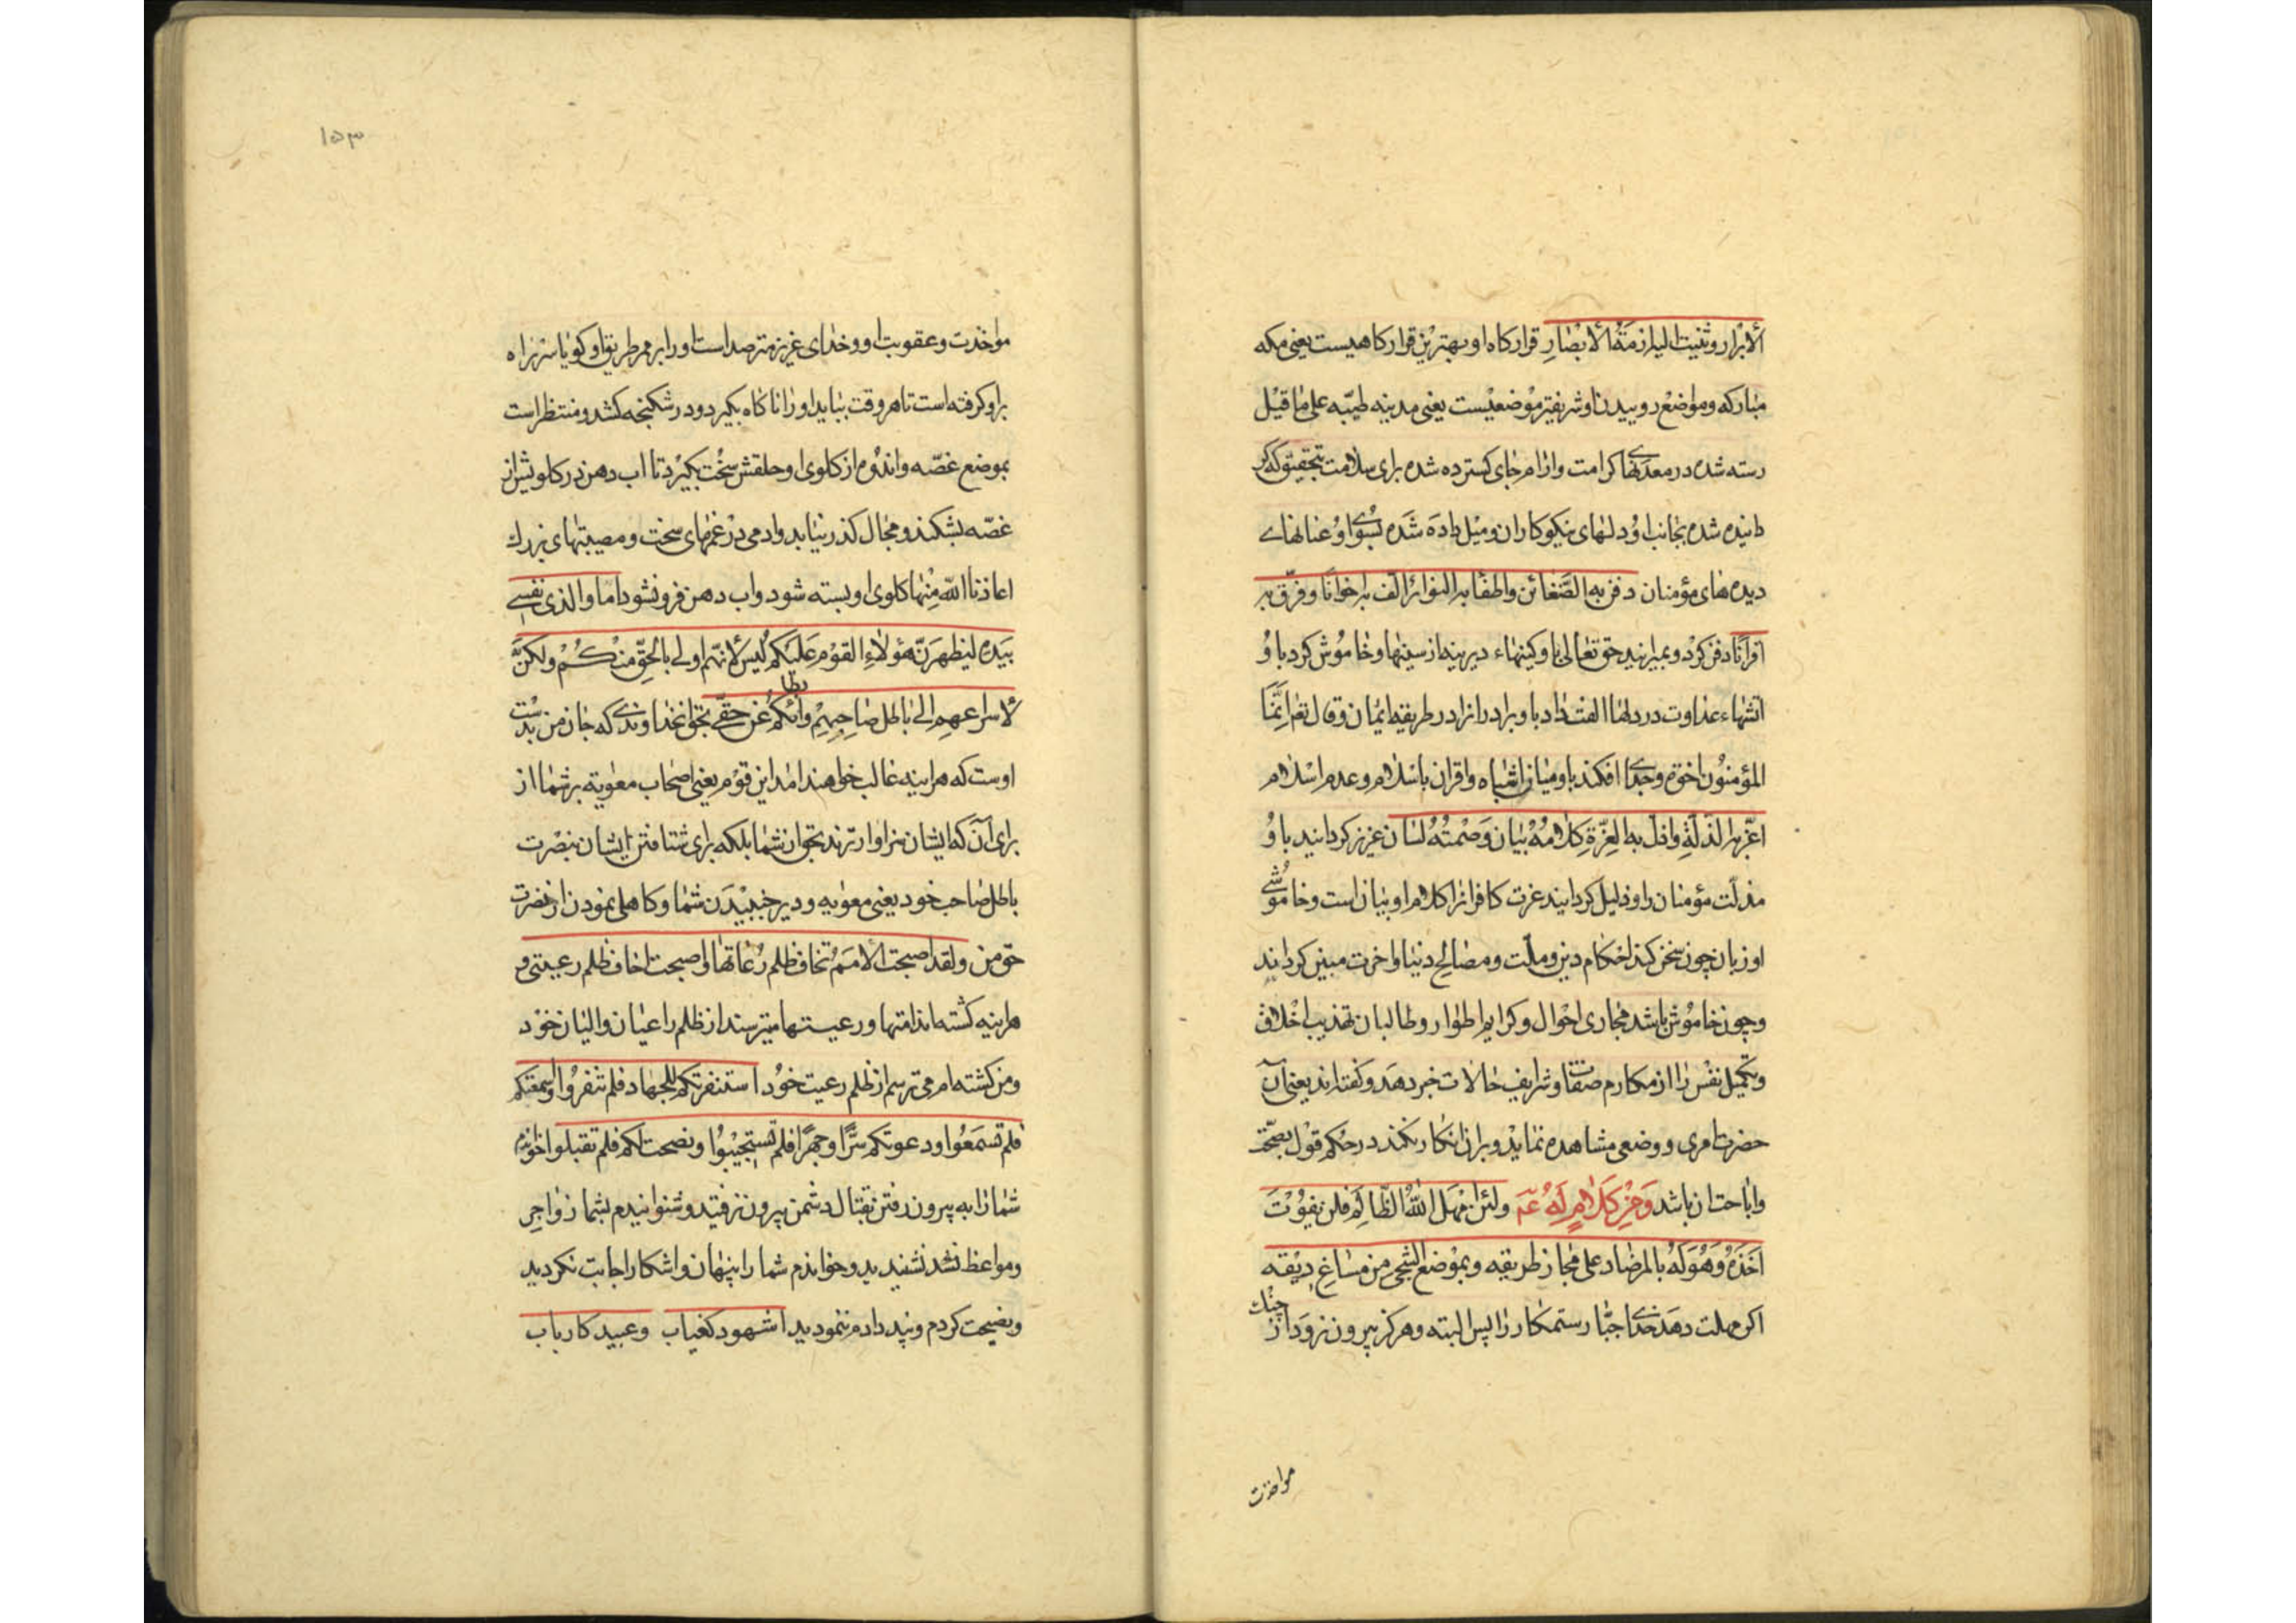 الابرار وثنیت الیه ازمة الابصار قرارکاه او بهترین قرارکاهیست یعنی مکه
مبارکه ومواضع روییدن او شریفتر موضعیست یعنی مدینه طیبه علی ما قیل
رسته شده در معدنهای کرامت وارام جای کسترده شده برای سلامت بتحقیق که کر
دانیده شده بجانب او دلهای نیکوکاران ومیل داده شده بسوی او عنانهای
دیده های مؤمنان دفن به الضغائن واطفأ به النوائر الّف به اخوانا وفرّق به
اقرانا دفن کرد وبمیرانید حق تعالی باو کینهاء دیرینه از سینها وخاموش کرد باو
اتشهاء عداوت در دلها الفت داد باو برادرانرا در طریقه ایمان وقال تعم انّما
المؤمنون اخوة وجدا افکند باو میان اشباه واقران باسلام وعدم اسلام
اعزّ به الذلّة واذلّ به العزّة کلامه بیان وصمته لسان عزیز کردانید باو
مذلت مؤمنان را وذلیل کردانید عزت کافرانرا کلام او بیان است وخاموشی
او زبان چون سخن کند احکام دین وملّت ومصالح دنیا واخرت مبین کرداند
وچون خاموش باشد مجاری احوال وکرایم اطوار وطالبان تهذیب اخلاق
وتکمیل نفس را از مکارم صفات وشرایف حالات خبر دهد وکفته اند یعنی آن
حضرت امری ووضعی مشاهده نماید وبران انکار نکند در حکم قول بصحّت
واباحت ان باشد ومن کلام له عم ولئن امهل اللّه الظالم فلن یفوت
اخذه وهو له بالمرصاد علی مجاز طریقه وبموضع الشجی من مساغ ریقه
اکر مهلت دهد خدای جبّار ستمکار را پس البته وهرکز بیرون نرود از چنك
مواخذت
۱۵۳
مواخذت وعقوبت او وخدای عزیز مترصد است او را بر ممر طریق او کویا سر راه
بر او کرفته است تا هر وقت بیاید او را ناکاه بکیرد ودر شکنجه کشد ومنتظر است
بموضع غصّه واندوه از کلوی او حلقش سخت بکیرد تا اب دهن در کلویش از
غصّه بشکند ومجال کذر نیابد وادمی در غمهای سخت ومصیبتهای بزرك
اعاذنا اللّه منها کلوی او بسته شود واب دهن فرو نشود اما والذی نفسی
بیده لیظهرنّ هؤلاء القوم علیکم لیس لانّهم اولی بالحقّ منکم ولکنّ
لاسراعهم الی باطل صاحبهم وابطائکم عن حقّی بحق خداوندی که جان من بدست
اوست که هراینه غالب خواهند امد این قوم یعنی اصحاب معویة بر شما از
برای آن که ایشان سزاوارترند بحق از شما بلکه برای شتافتن ایشان بنصرت
باطل صاحب خود یعنی معویه ودیر جنبیدن شما وکاهلی نمودن از نصرت
حق من ولقد اصبحت الامم تخاف ظلم رعاتها واصبحت اخاف ظلم رعیتی و
هراینه کشته اند امتها ورعیتها میترسند از ظلم راعیان والیان خود
ومن کشته ام می ترسم از ظلم رعیت خود استنفرتکم للجهاد فلم تنفروا واسمعتکم
فلم تسمعوا ودعوتکم سرّا وجهرا فلم تستجیبوا ونصحت لکم فلم تقبلوا خواندم
شما را به بیرون رفتن بقتال دشمن بیرون نرفتید وشنوانیدم بشما زواجر
ومواعظ نشد نشنیدید وخواندم شما را پنهان واشکارا اجابت نکردید
ونصیحت کردم وپند دادم ننمودید اشهود کغیاب وعبید کارباب